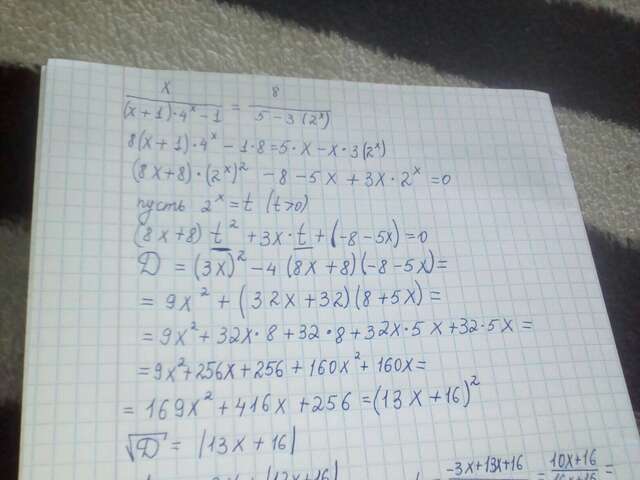 x / ((x+1)·4^x − 1) = 8 / (5 − 3(2^x))
8(x+1)·4^x − 1·8 = 5·x − x·3(2^x)
(8x+8)·(2^x)^2 − 8 − 5x + 3x·2^x = 0
пусть 2^x = t (t>0)
(8x+8) t^2 + 3x·t + (−8−5x) = 0
D = (3x)^2 − 4 (8x+8)(−8−5x) =
= 9x^2 + (32x+32)(8+5x) =
= 9x^2 + 32x·8 + 32·8 + 32x·5x + 32·5x =
= 9x^2 + 256x + 256 + 160x^2 + 160x =
= 169x^2 + 416x + 256 = (13x+16)^2
√D = |13x+16|
−3x+13x+16 = 10x+16 =